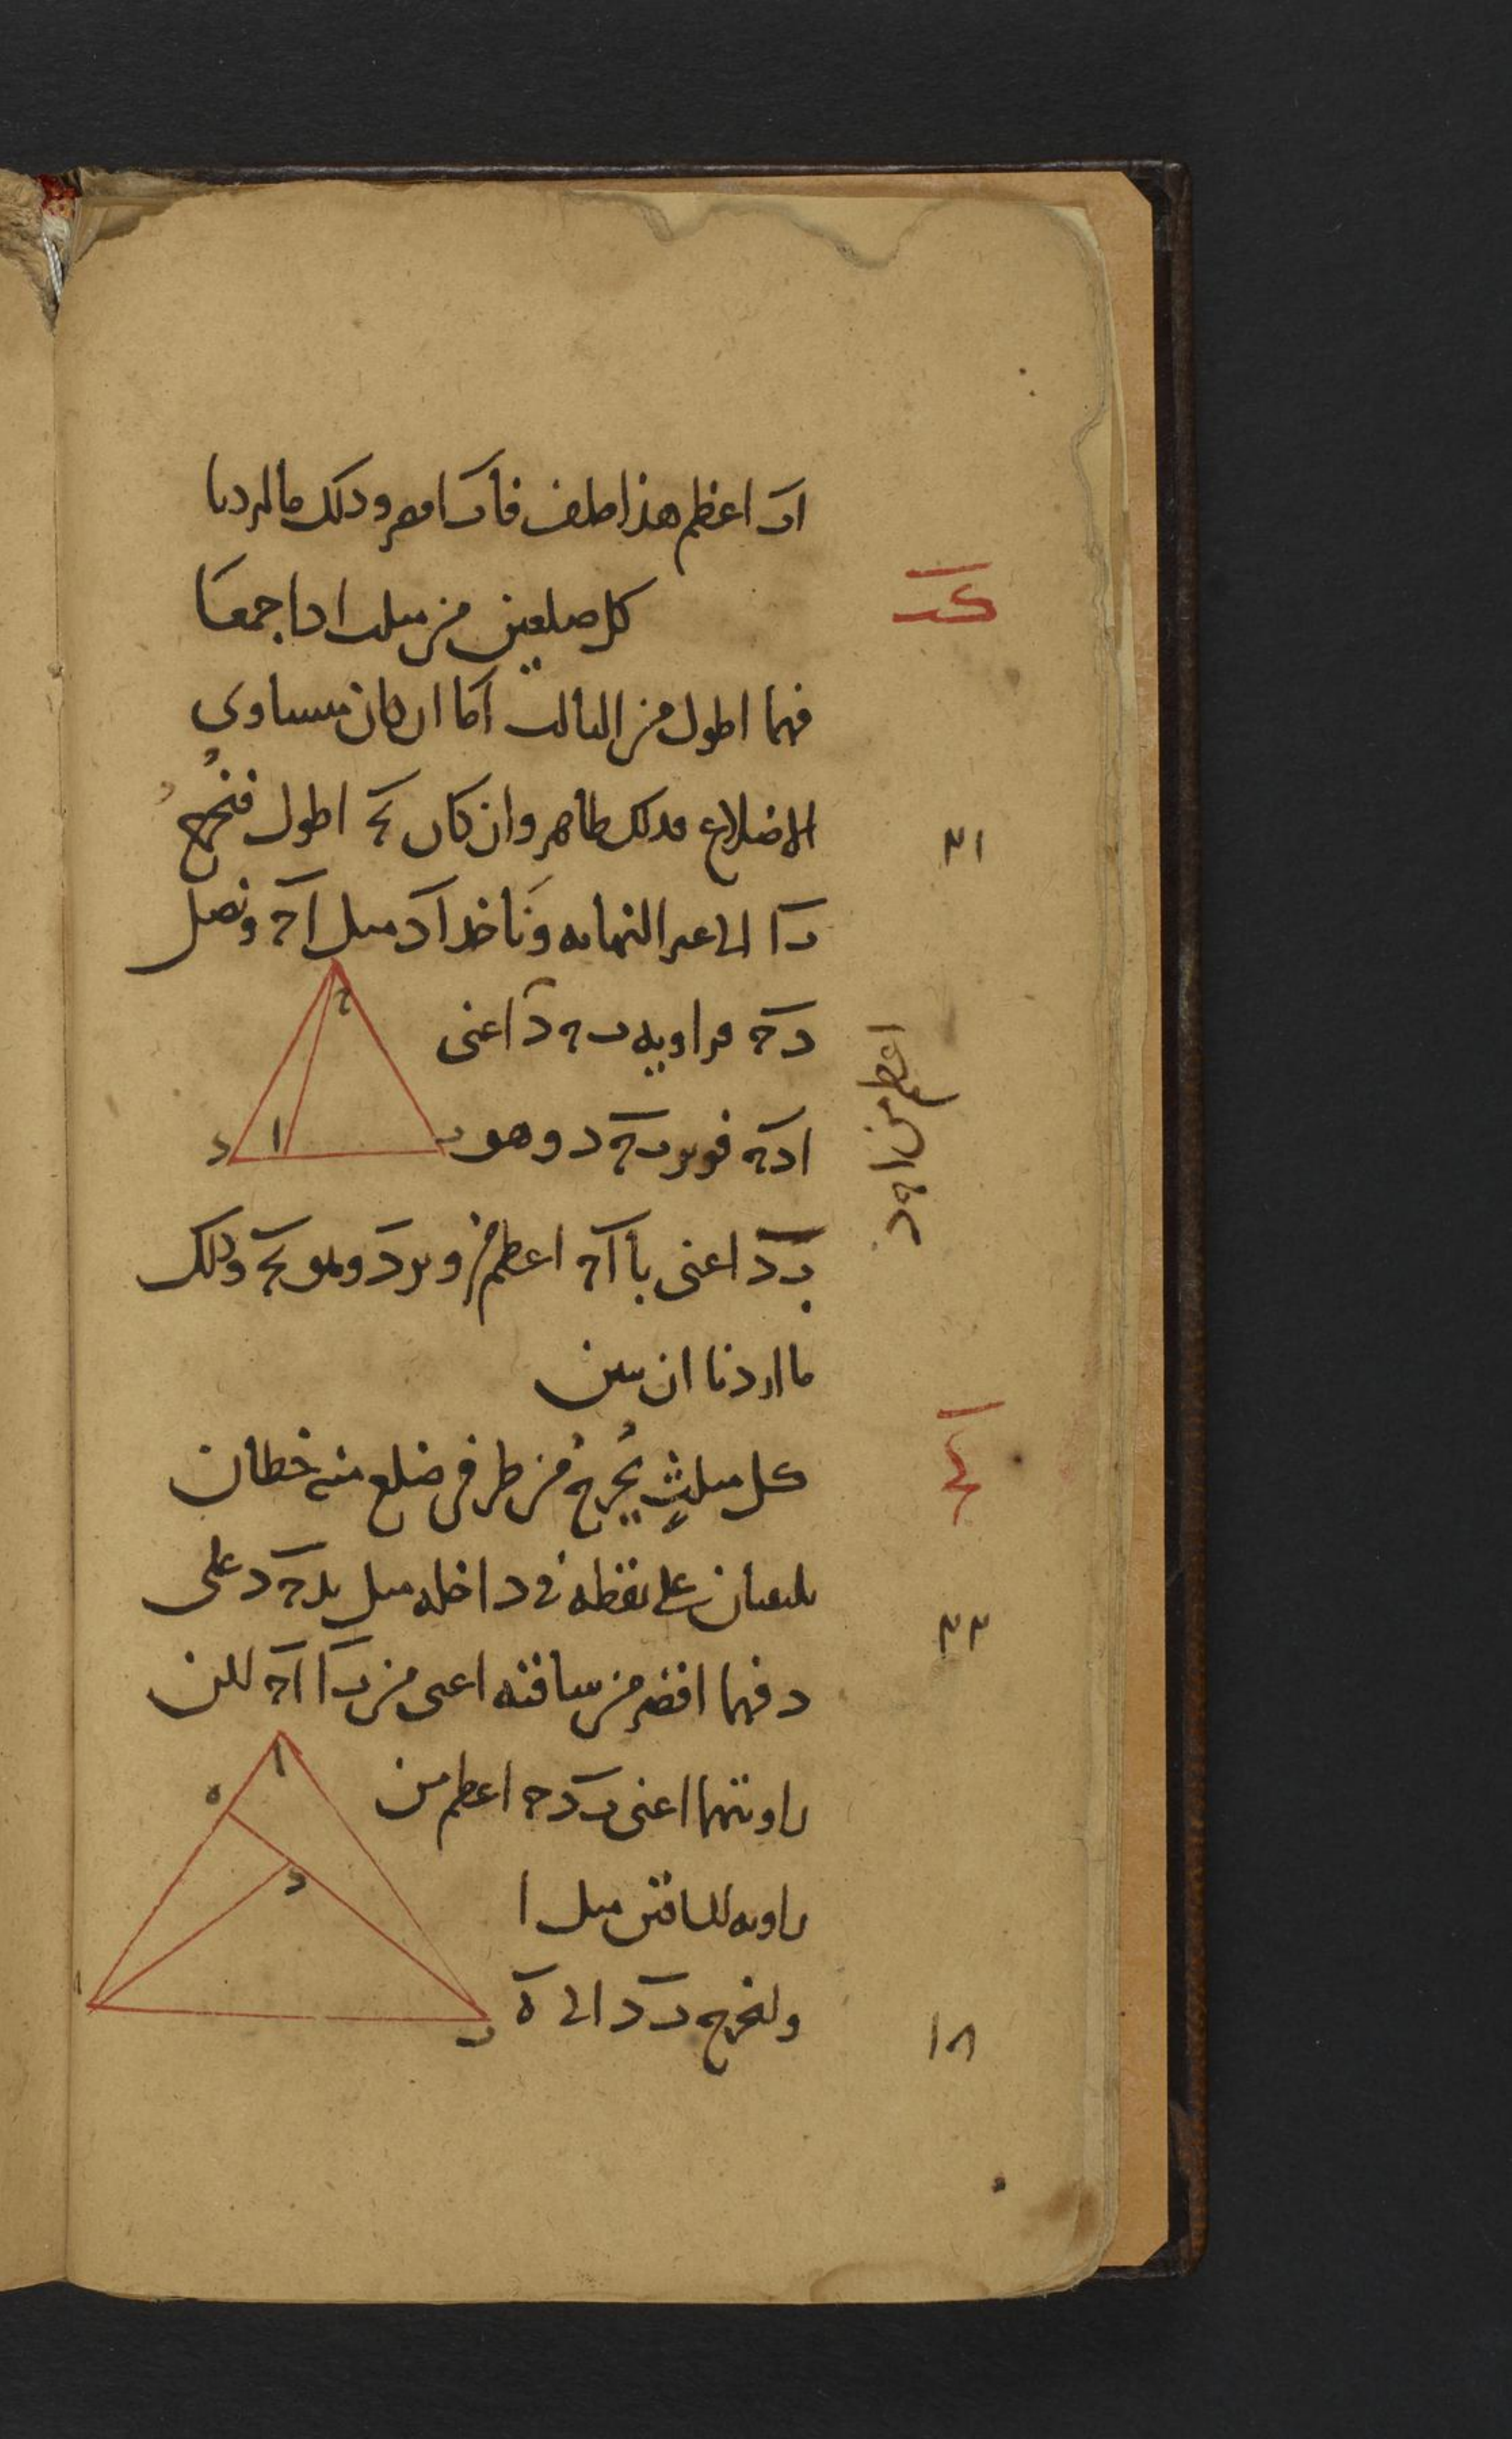 اب اعظم هذا خلف فاب اقصر وذلك ما اردنا
كد
كل ضلعين من مثلث اذا جمعا
فهما اطول من الثالث اما ان كان متساوى
الاضلاع فذلك ظاهر وان كان بج اطول فنخرج
٣١
با الى غير النهايه وناخذ اد مثل اج ونصل
دج فزاويه بج د اعنى
ادج فوتر بج د وهو
اعظم من اجد
بد اعنى با اج اعظم من وتر د وهو بج وذلك
ما اردنا ان نبين
كه
كل مثلث يخرج من طرفى ضلع منه خطان
يلتقيان على نقطه فى داخله مثل بد جد على
٣٣
د فهما اقصر من ساقيه اعنى من با اج لكن
زاويتهما اعنى بدج اعظم من
زاويه الساقين مثل ا
ولنخرج بد الى ه
١٨
ج
د
ا
ب
ا
ه
د
ب